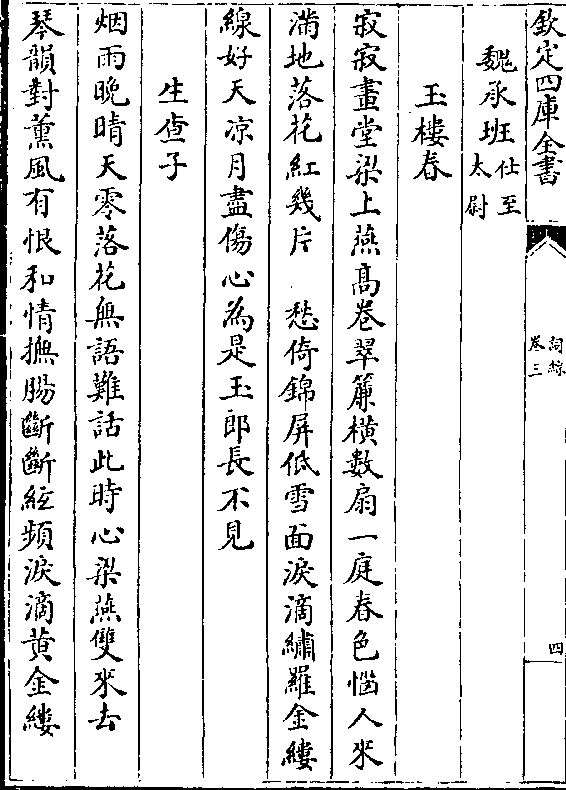 欽定四庫全書
詞綜
卷三
四
魏承班仕至太尉
玉樓春
寂寂畫堂梁上燕高卷翠簾橫數扇一庭春色惱人來
滿地落花紅幾片　愁倚錦屏低雪面淚滴繡羅金縷
線好天凉月盡傷心為是玉郎長不見
生查子
烟雨晚晴天零落花無語難話此時心梁燕雙來去
琴韻對薰風有恨和情撫腸斷斷絃頻淚滴黄金縷